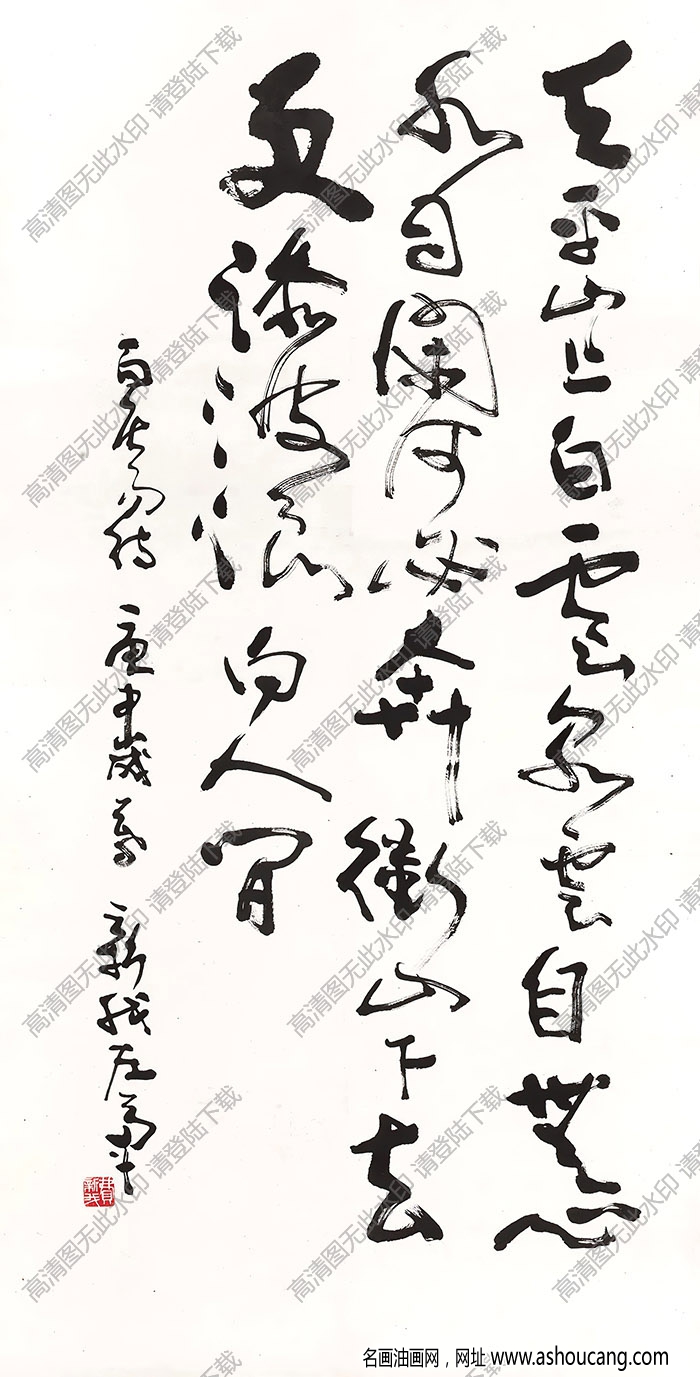 天平山上白雲泉雲自無心
水自閑何必奔衝山下去
更添波浪向人間
白居易詩 庚申歲 新我左筆
費新我
高清图无此水印 请登陆下载
名画油画网，网址 www.ashoucang.com